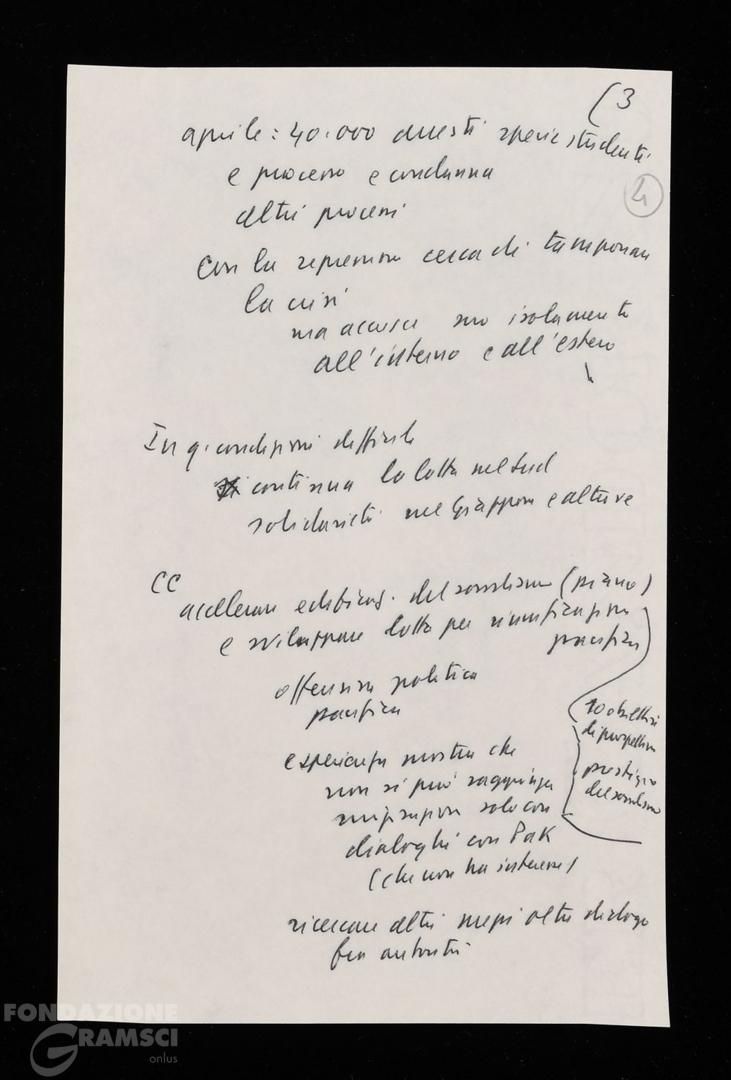 (3
aprile: 40.000 arresti specie studenti
4
e processo e condanna
altri processi
Con la repressione cerca di tamponare
la crisi
ma accresce suo isolamento
all'interno e all'estero
In q. condizioni difficili
continua la lotta nel Sud
solidarietà nel Giappone e altrove
CC
accellerare edificaz. del socialismo (piano)
e sviluppare lotta per riunificazione
pacifica
offensiva politica
pacifica
10 obiettivi
di prospettiva
prestigio
del socialismo
esperienza mostra che
non si può raggiungere
solo con
dialoghi con Pak
(che non ha interesse)
ricercare altri mezzi oltre dialogo
fra autorità
FONDAZIONE
GRAMSCI
onlus